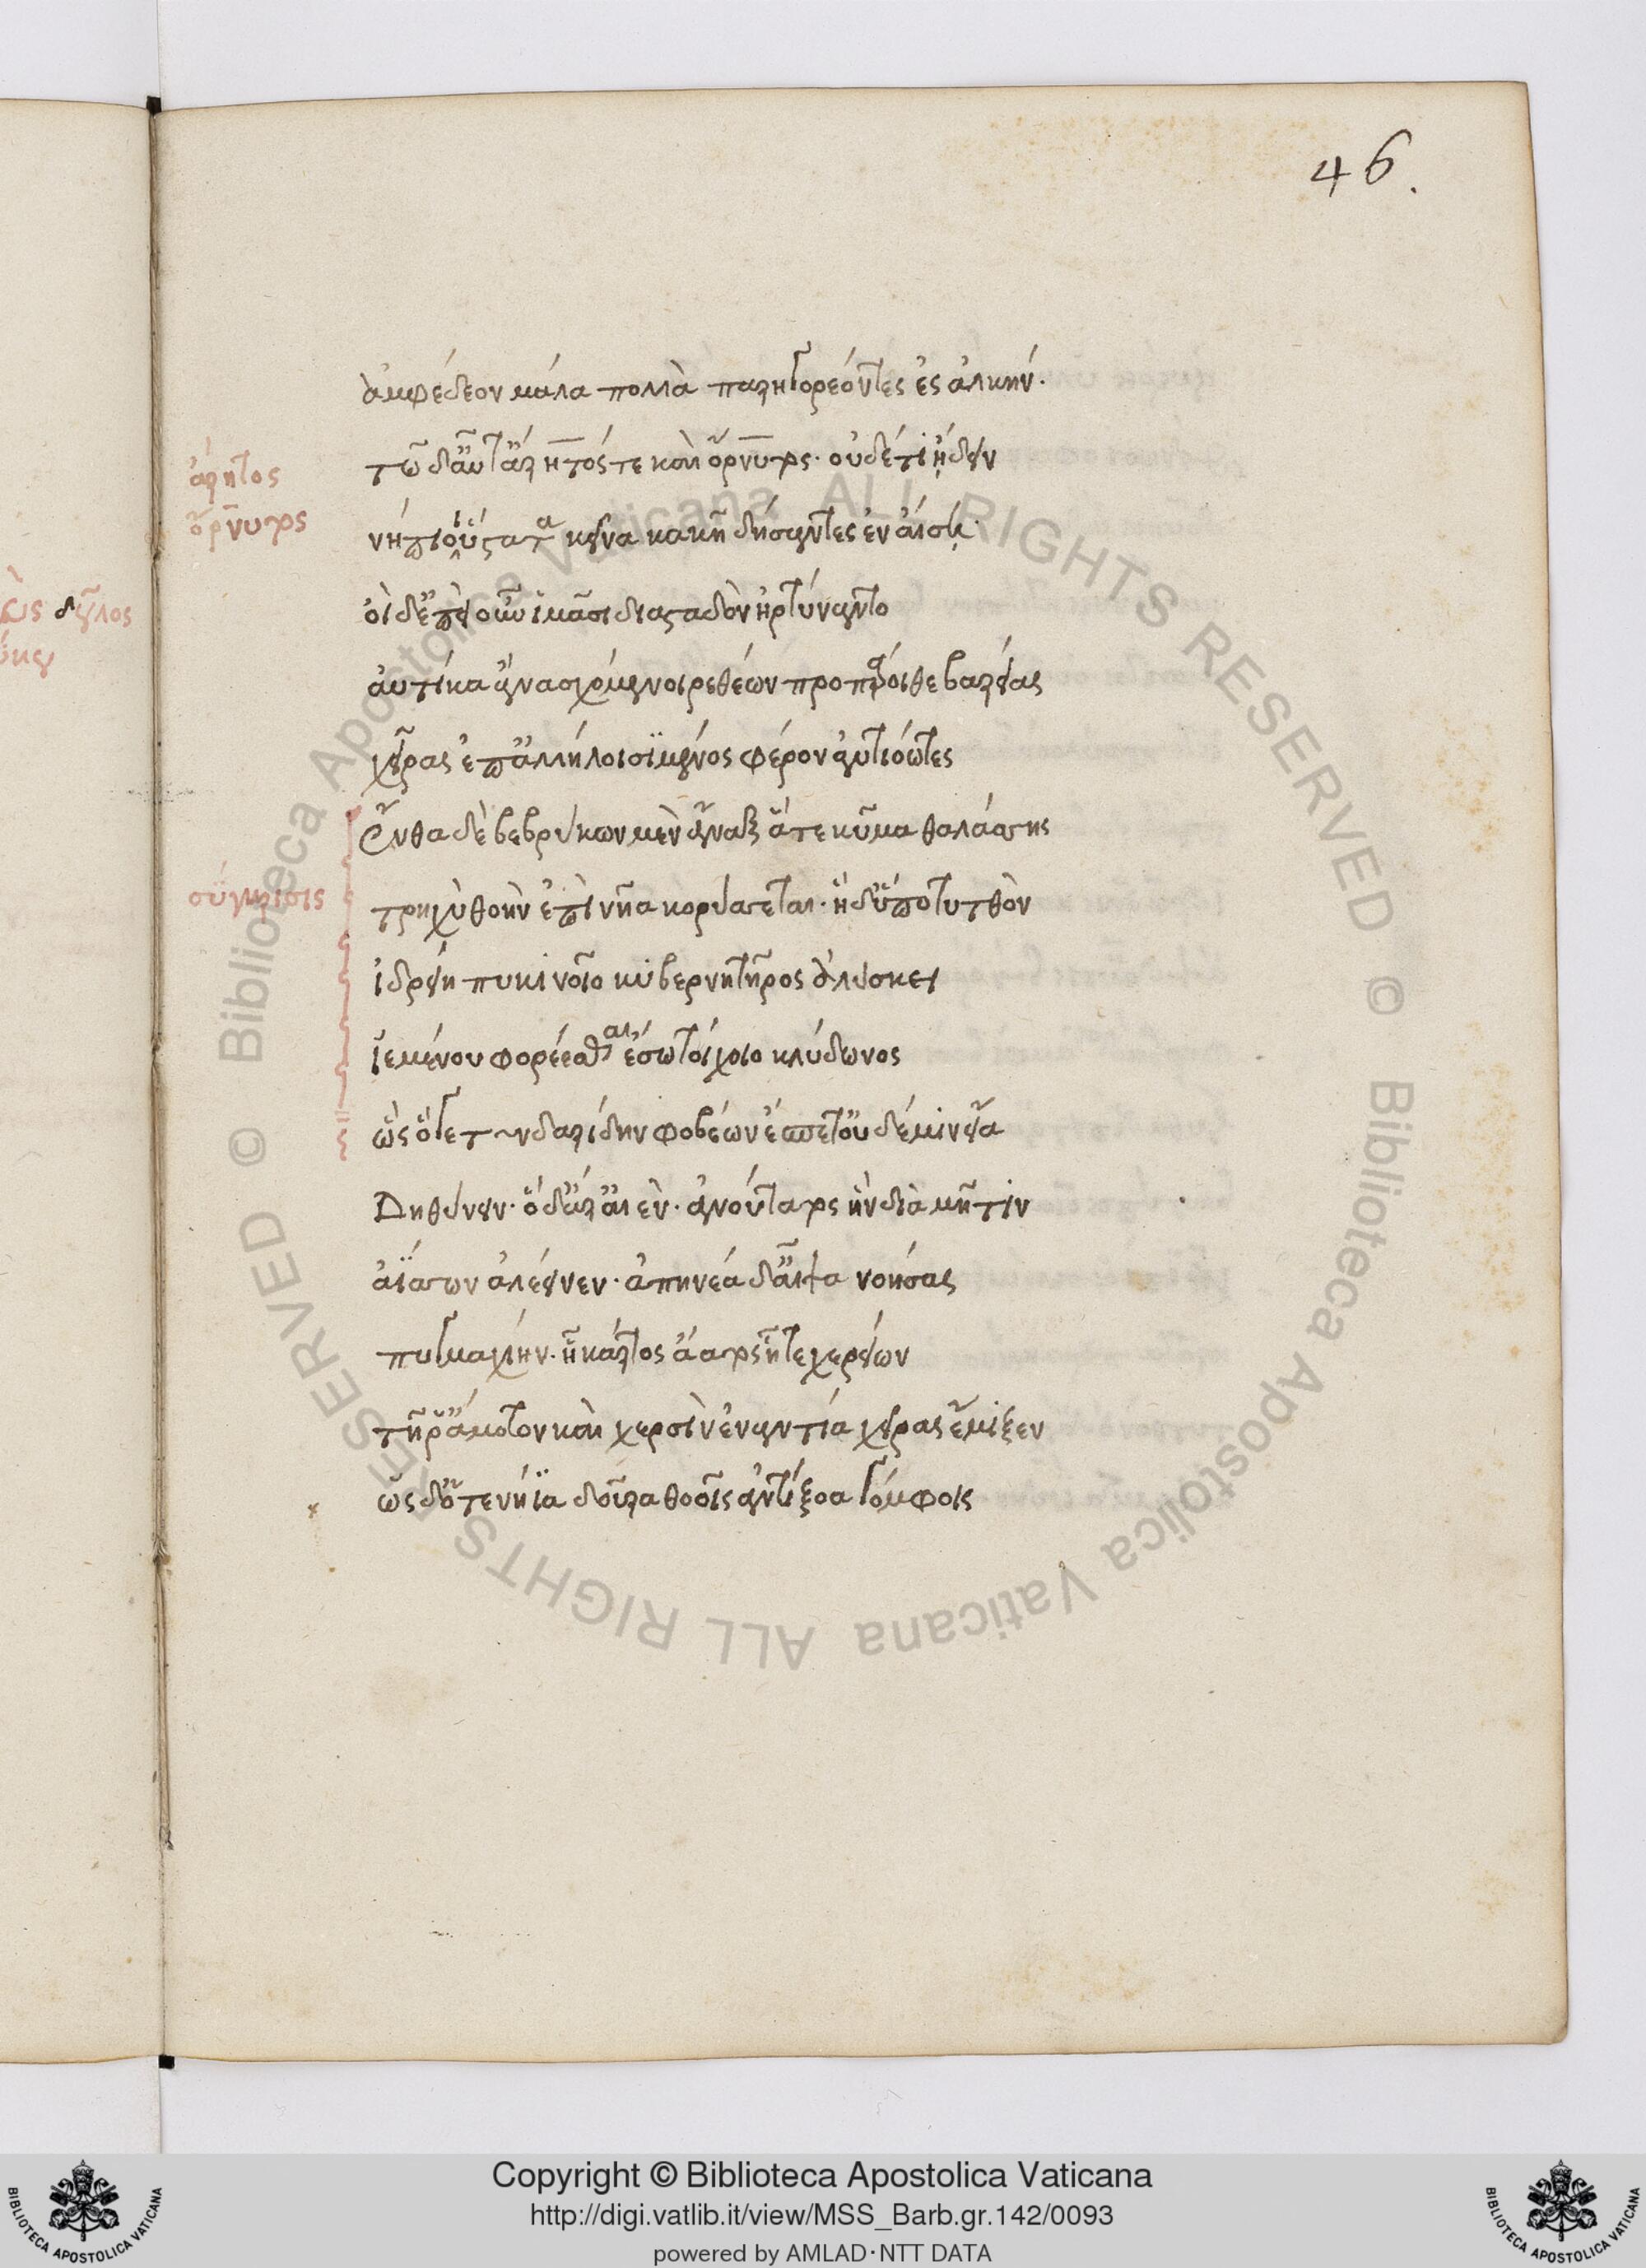 46.
ἀμφέδεον μάλα πολλὰ παρηγορέοντες ἐς ἀλκήν·
τῶ δ' αὖτ' ἄρητός τε καὶ ὄρνυτος· οὐδέ τι ᾔδειν
νήπιοι ὕστατα κεῖνα κακῆ δήσαντες ἐν αἴσῃ·
οἱ δ' ἐπεὶ οὖν ἱμᾶσι διασταδὸν ἠρτύναντο
αὐτίκα ἀνασχόμενοι ῥεθέων προπάροιθε βαρείας
χεῖρας ἐπ' ἀλλήλοισι μένος φέρον ἀντιόωντες
ἔνθα δὲ βεβρύκων μὲν ἄναξ ἅ τε κῦμα θαλάσσης
τρηχὺ θοὴν ἐπὶ νῆα κορύσσεται· ἡ δ' ὑπὸ τυτθὸν
ἰδρείη πυκινοῖο κυβερνητῆρος ἀλύσκει
ἱεμένου φορέεσθαι ἔσω τοίχοιο κλύδωνος
ὣς ὅγε τυνδαρίδην φοβέων ἕπετ' οὐδέ μιν εἴα
δηθύνειν· ὁ δ' ἄρ' αἰὲν· ἀνούτατος ἣν διὰ μῆτιν
ἀΐσσων ἀλέεινεν· ἀπηνέα δ' αἶψα νοήσας
πυγμαχίην· ἧ κάρτος ἀάατος ἧ τε χερείων
τῆ ῥ' ἄμοτον καὶ χερσὶν ἐναντία χεῖρας ἔμιξεν
ὡς δ' ὅτε νήϊα δοῦρα θοοῖς ἀντίξοα γόμφοις
ἄρητος
ὄρνυτος
σύγκρισις
Copyright © Biblioteca Apostolica Vaticana
http://digi.vatlib.it/view/MSS_Barb.gr.142/0093
powered by AMLAD·NTT DATA
BIBLIOTECA APOSTOLICA VATICANA
BIBLIOTECA APOSTOLICA VATICANA
© Biblioteca Apostolica Vaticana ALL RIGHTS RESERVED
© Biblioteca Apostolica Vaticana ALL RIGHTS RESERVED